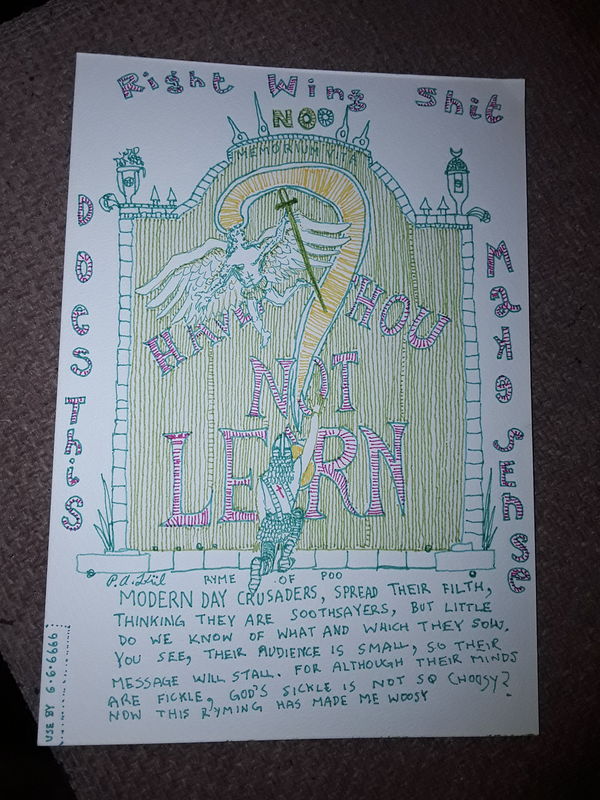 Right Wing Shit
NOO
MEMORIUM VITA
Does This
Make Sense
HAVE THOU
NOT
LEARN
RYME OF POO
MODERN DAY CRUSADERS, SPREAD THEIR FILTH,
THINKING THEY ARE SOOTHSAYERS, BUT LITTLE
DO WE KNOW OF WHAT AND WHICH THEY SOW.
YOU SEE, THEIR AUDIENCE IS SMALL, SO THEIR
MESSAGE WILL STALL. FOR ALTHOUGH THEIR MINDS
ARE FICKLE, GOD'S SICKLE IS NOT SO CHOOSY?
NOW THIS RYMING HAS MADE ME WOOSY
USE BY 6.6.6666